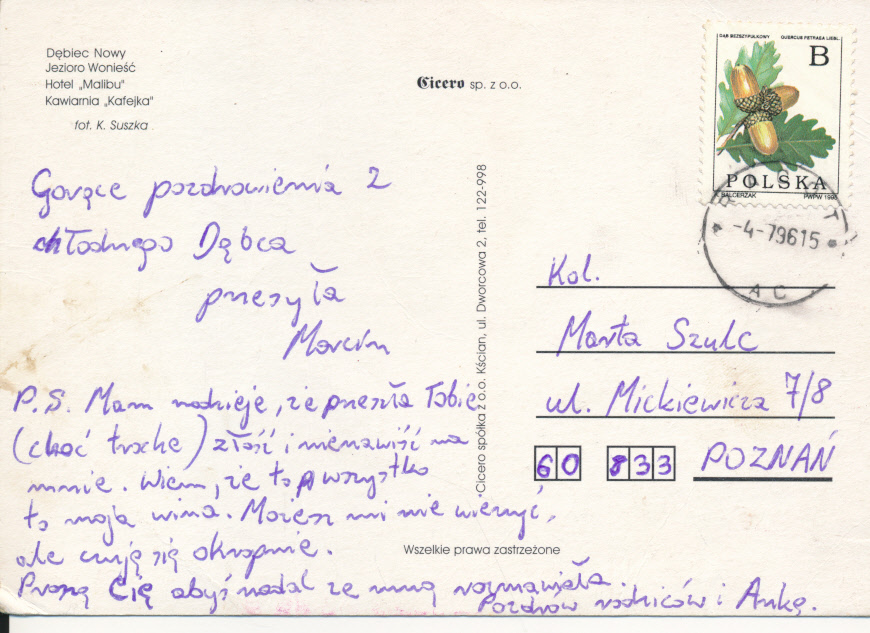 Dębiec Nowy
Jezioro Wonieść
Hotel „Malibu"
Kawiarnia „Kafejka"
fot. K. Suszka
Cicero sp. z o.o.
DĄB BEZSZYPUŁKOWY QUERCUS PETRAEA LIEBL.
B
POLSKA
BALCERZAK PWPW 1995
-4-7.9615
A C
Gorące pozdrowienia z
chłodnego Dębca
przesyła
Marcin
P.S. Mam nadzieję, że przeszła Tobie
(choć trochę) złość i nienawiść na
mnie. Wiem, że to wszystko
to moja wina. Możesz mi nie wierzyć,
ale czuję się okropnie.
Proszę Cię abyś nadal ze mną rozmawiała.
Pozdrów rodziców i Ankę.
Cicero spółka z o.o. Kścian, ul. Dworcowa 2, tel. 122-998
Kol.
Marta Szulc
ul. Mickiewicza 7/8
60 833 POZNAŃ
Wszelkie prawa zastrzeżone